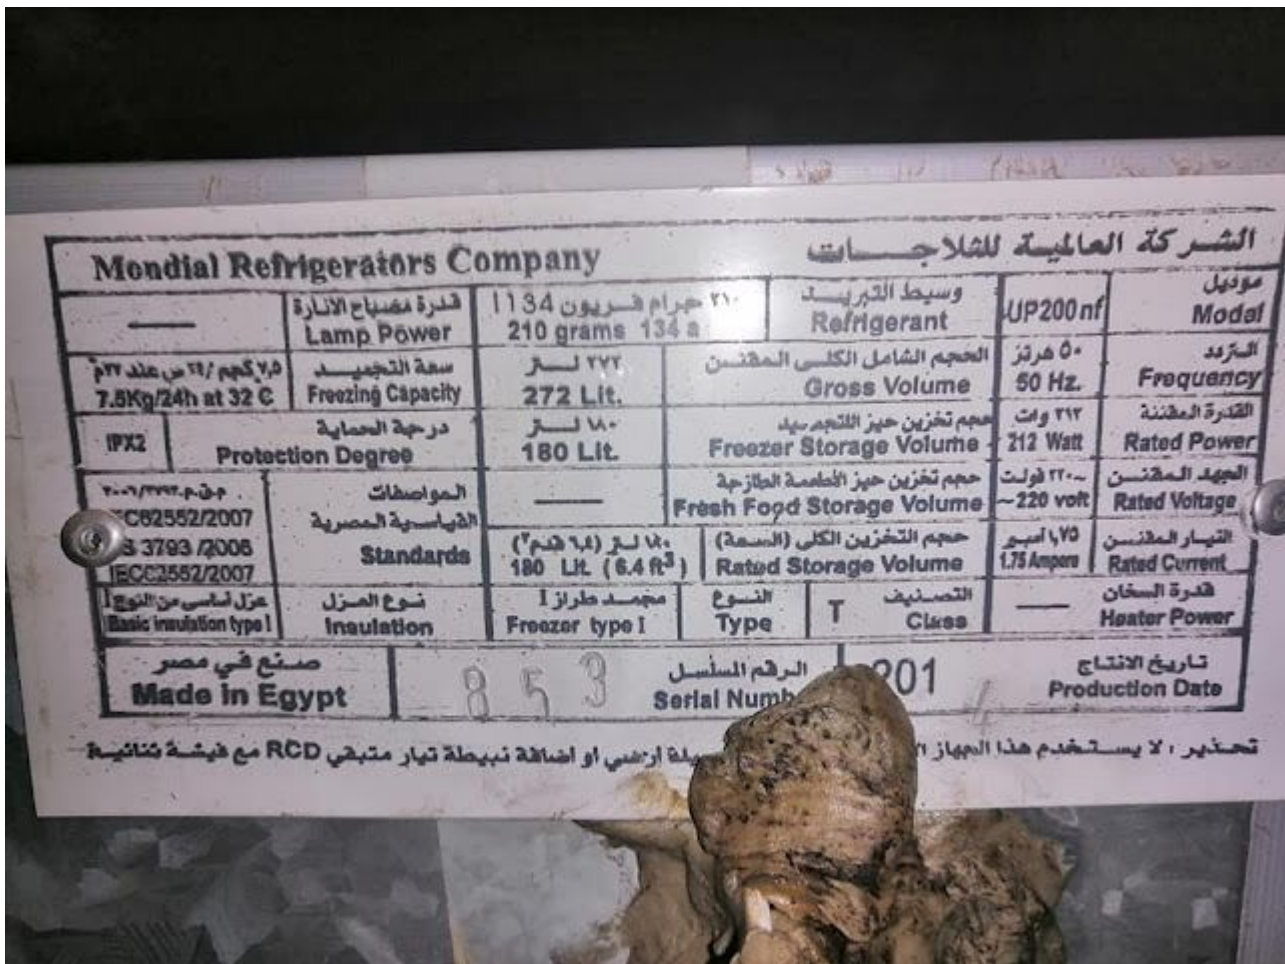 Mondial Refrigerators Company الشركة العالمية للثلاجات
موديل
Model
UP200nf
وسيط التبريد
Refrigerant
٢١٠ جرام فريون 134 أ
210 grams 134 a
قدرة مصباح الانارة
Lamp Power
التردد
Frequency
٥٠ هرتز
50 Hz.
الحجم الشامل الكلى المقنن
Gross Volume
٢٧٢ لتر
272 Lit.
سعة التجميد
Freezing Capacity
٧,٥ كجم /٢٤ س عند ٣٢م°
7.5Kg/24h at 32 C
القدرة المقننة
Rated Power
٢١٢ وات
212 Watt
حجم تخزين حيز التجميد
Freezer Storage Volume
١٨٠ لتر
180 Lit.
درجة الحماية
Protection Degree
IPX2
الجهد المقنن
Rated Voltage
~٢٢٠ فولت
~220 volt
حجم تخزين حيز الأطعمة الطازجة
Fresh Food Storage Volume
المواصفات
القياسية المصرية
Standards
م.ق.م
EC62552/2007
S 3793 /2006
IEC62552/2007
التيار المقنن
Rated Current
١,٧٥ أمبير
1.75 Ampere
حجم التخزين الكلى (السعة)
Rated Storage Volume
١٨٠ لتر (٦,٤ قدم٣)
180 Lit. (6.4 ft³)
قدرة السخان
Heater Power
التصنيف
Class
T
النوع
Type
مجمد طراز I
Freezer type I
نوع العزل
Insulation
عزل أساسى من النوع I
Basic insulation type I
تاريخ الانتاج
Production Date
201
الرقم المسلسل
Serial Numb
853
صنع في مصر
Made in Egypt
تحذير : لا يستخدم هذا الجهاز أرضي أو اضافة نبيطة تيار متبقي RCD مع فيشة ثنائية